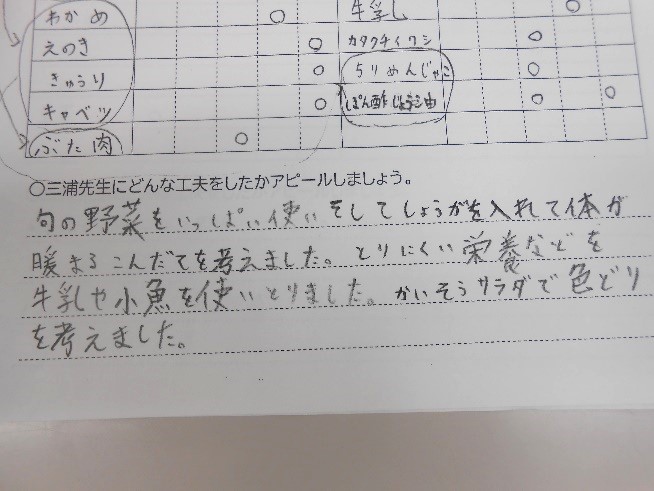 わかめ 牛乳
えのき カタクチイワシ
きゅうり ちりめんじゃこ
キャベツ ぽん酢じょう油
ぶた肉
○三浦先生にどんな工夫をしたかアピールしましょう。
旬の野菜をいっぱい使いそしてしょうがを入れて体が
暖まるこんだてを考えました。とりにくい栄養などを
牛乳や小魚を使いとりました。かいそうサラダで色どり
を考えました。